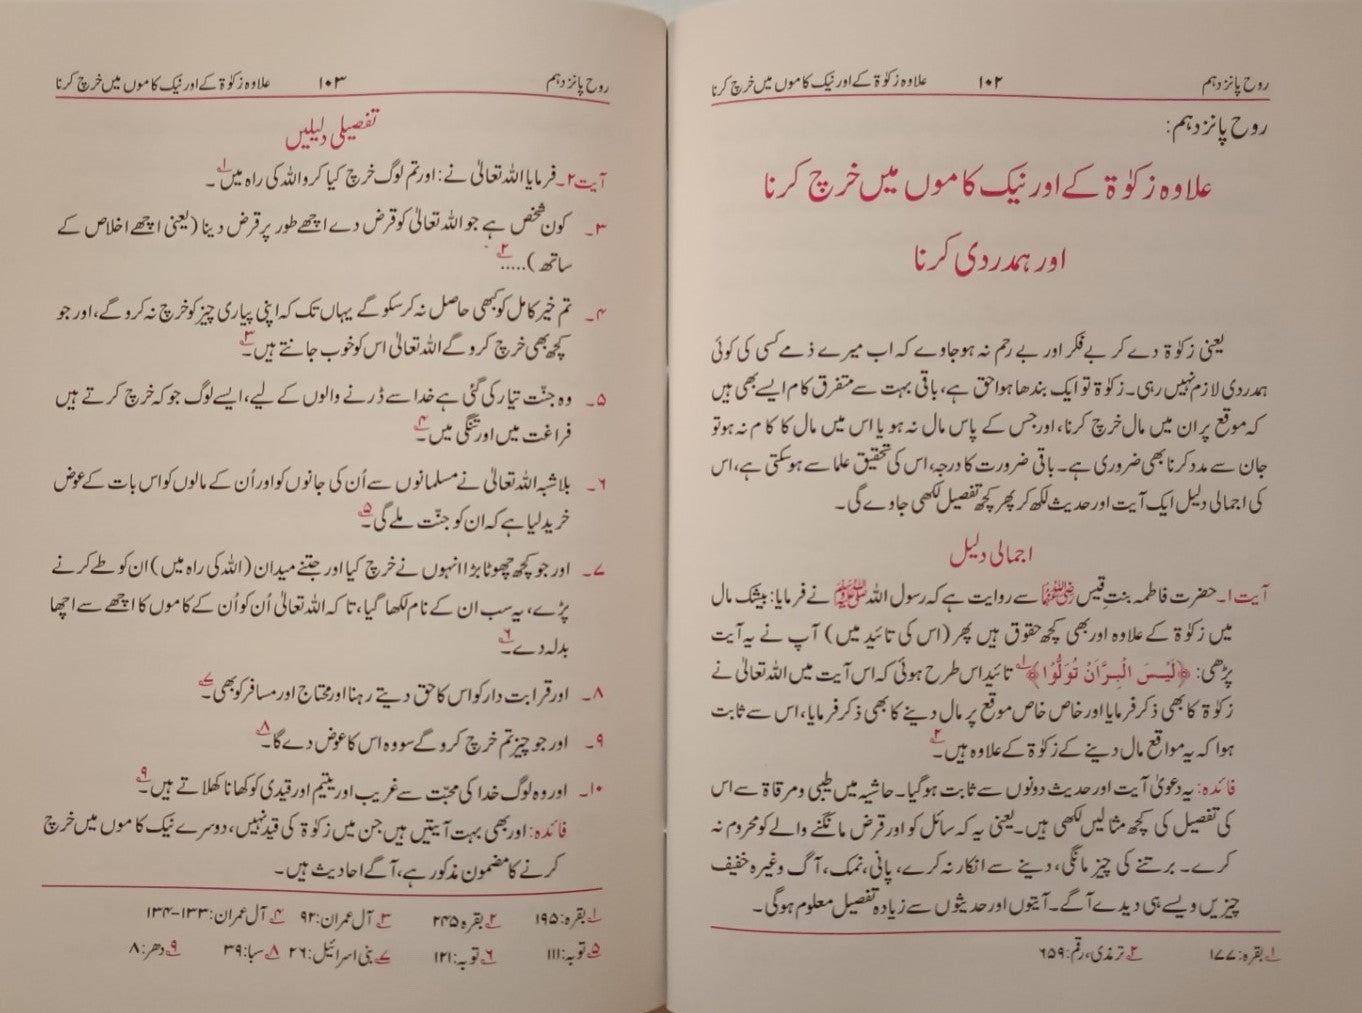 روح پانزدہم ۱۰۲ علاوہ زکوٰۃ کے اور نیک کاموں میں خرچ کرنا
روح پانزدہم:
علاوہ زکوٰۃ کے اور نیک کاموں میں خرچ کرنا
اور ہمدردی کرنا
یعنی زکوٰۃ دے کر بے فکر اور بے رحم نہ ہوجاوے کہ اب میرے ذمے کسی کی کوئی
ہمدردی لازم نہیں رہی۔ زکوٰۃ تو ایک بندھا ہوا حق ہے، باقی بہت سے متفرق کام ایسے بھی ہیں
کہ موقع پر ان میں مال خرچ کرنا، اور جس کے پاس مال نہ ہو یا اس میں مال کا کام نہ ہو تو
جان سے مدد کرنا بھی ضروری ہے۔ باقی ضرورت کا درجہ، اس کی تحقیق علما سے ہوسکتی ہے، اس
کی اجمالی دلیل ایک آیت اور حدیث لکھ کر پھر کچھ تفصیل لکھی جاوے گی۔
اجمالی دلیل
آیت ۱۔ حضرت فاطمہ بنتِ قیس رضی اللہ عنہا سے روایت ہے کہ رسول اللہ ﷺ نے فرمایا: بیشک مال
میں زکوٰۃ کے علاوہ اور بھی کچھ حقوق ہیں پھر (اس کی تائید میں) آپ نے یہ آیت
پڑھی: ﴿لَیْسَ الْبِرَّ اَنْ تُوَلُّوْا﴾۱؎ تائید اس طرح ہوئی کہ اس آیت میں اللہ تعالیٰ نے
زکوٰۃ کا بھی ذکر فرمایا اور خاص خاص موقع پر مال دینے کا بھی ذکر فرمایا، اس سے ثابت
ہوا کہ یہ مواقع مال دینے کے زکوٰۃ کے علاوہ ہیں۔۲؎
فائدہ: یہ دعویٰ آیت اور حدیث دونوں سے ثابت ہوگیا۔ حاشیہ میں طیبی و مرقاۃ سے اس
کی تفصیل کی کچھ مثالیں لکھی ہیں۔ یعنی یہ کہ سائل کو اور قرض مانگنے والے کو محروم نہ
کرے۔ برتنے کی چیز مانگی، دینے سے انکار نہ کرے، پانی، نمک، آگ وغیرہ خفیف
چیزیں ویسے ہی دیدے آگے۔ آیتوں اور حدیثوں سے زیادہ تفصیل معلوم ہوگی۔
۱؎ بقرہ: ۱۷۷ ۲؎ ترمذی، رقم: ۶۵۹
روح پانزدہم ۱۰۳ علاوہ زکوٰۃ کے اور نیک کاموں میں خرچ کرنا
تفصیلی دلیلیں
آیت ۲۔ فرمایا اللہ تعالیٰ نے: اور تم لوگ خرچ کیا کرو اللہ کی راہ میں۱؎۔
۳۔ کون شخص ہے جو اللہ تعالیٰ کو قرض دے اچھے طور پر قرض دینا (یعنی اچھے اخلاص کے
ساتھ).....۲؎
۴۔ تم خیرِ کامل کو کبھی حاصل نہ کرسکو گے یہاں تک کہ اپنی پیاری چیز کو خرچ نہ کرو گے، اور جو
کچھ بھی خرچ کرو گے اللہ تعالیٰ اس کو خوب جانتے ہیں۔۳؎
۵۔ وہ جنّت تیار کی گئی ہے خدا سے ڈرنے والوں کے لیے، ایسے لوگ جو کہ خرچ کرتے ہیں
فراغت میں اور تنگی میں۔۴؎
۶۔ بلاشبہ اللہ تعالیٰ نے مسلمانوں سے اُن کی جانوں کو اور اُن کے مالوں کو اس بات کے عوض
خرید لیا ہے کہ ان کو جنّت ملے گی۔۵؎
۷۔ اور جو کچھ چھوٹا بڑا انہوں نے خرچ کیا اور جتنے میدان (اللہ کی راہ میں) ان کو طے کرنے
پڑے، یہ سب ان کے نام لکھا گیا، تاکہ اللہ تعالیٰ اُن کو اُن کے کاموں کا اچھے سے اچھا
بدلہ دے۔۶؎
۸۔ اور قرابت دار کو اس کا حق دیتے رہنا اور محتاج اور مسافر کو بھی۔۷؎
۹۔ اور جو چیز تم خرچ کرو گے سو وہ اس کا عوض دے گا۔۸؎
۱۰۔ اور وہ لوگ خدا کی محبّت سے غریب اور یتیم اور قیدی کو کھانا کھلاتے ہیں۔۹؎
فائدہ: اور بھی بہت آیتیں ہیں جن میں زکوٰۃ کی قید نہیں، دوسرے نیک کاموں میں خرچ
کرنے کا مضمون مذکور ہے، آگے احادیث ہیں۔
۱؎ بقرہ: ۱۹۵ ۲؎ بقرہ ۲۴۵ ۳؎ آل عمران: ۹۲ ۴؎ آل عمران: ۱۳۳-۱۳۴
۵؎ توبہ: ۱۱۱ ۶؎ توبہ: ۱۲۱ ۷؎ بنی اسرائیل: ۲۶ ۸؎ سبا: ۳۹ ۹؎ دھر: ۸